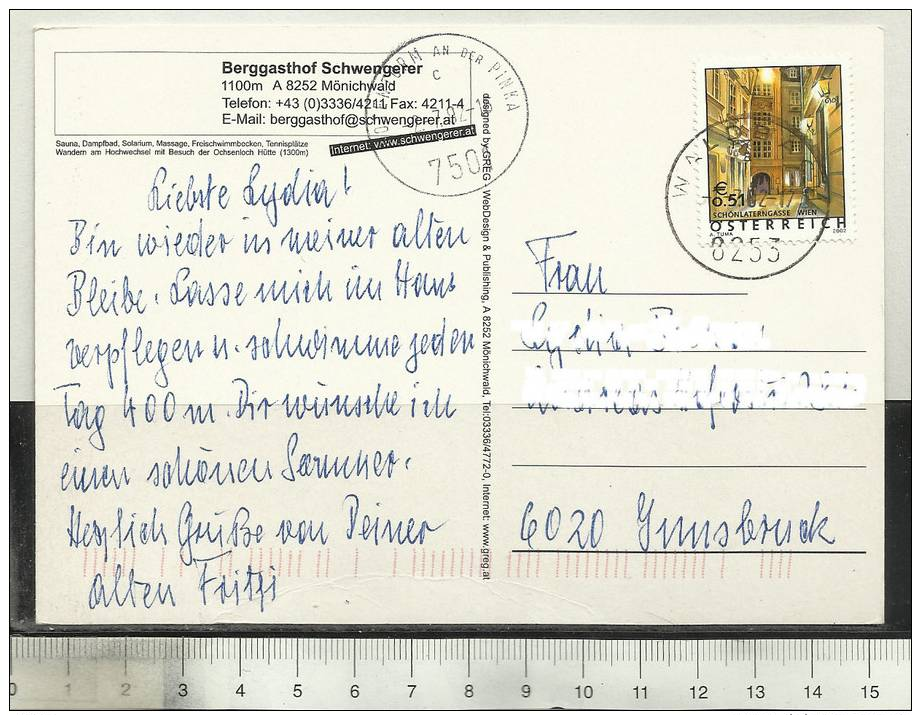 Berggasthof Schwengerer
1100m A 8252 Mönichwald
Telefon: +43 (0)3336/4211 Fax: 4211-4
E-Mail: berggasthof@schwengerer.at
Internet: www.schwengerer.at
Sauna, Dampfbad, Solarium, Massage, Freischwimmbecken, Tennisplätze
Wandern am Hochwechsel mit Besuch der Ochsenloch Hütte (1300m)
AN DER PINKA
C
750
designed by GREG - WebDesign & Publishing, A 8252 Mönichwald, Tel:03336/4772-0, Internet: www.greg.at
Liebste Lydia!
Bin wieder in meiner alten
Bleibe. Lasse mich im Haus
verpflegen u. schwimme jeden
Tag 400 m. Dir wünsche ich
einen schönen Sommer.
Herzlich Grüße von Deiner
alten Fritzi
€
0.51
SCHÖNLATERNGASSE WIEN
ÖSTERREICH
A. TUMA 2002
8253
Frau
6020 Innsbruck
0 1 2 3 4 5 6 7 8 9 10 11 12 13 14 15